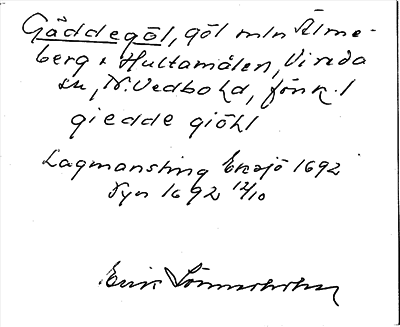 Gäddegöl, göl mln Älme-
berg o Hultamålen, Vireda
sn, N. Vedbo hd, Jönk. l
giedde giöhl
Lagmansting Eksjö 1692
Tyn 1692 12/10
Erik